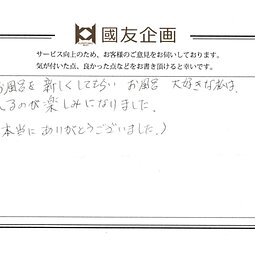 國友企画
サービス向上のため、お客様のご意見をお伺いしております。
気が付いた点、良かった点などをお書き頂けると幸いです。
お風呂を新しくしてもらい お風呂 大好きな私は、
入るのが楽しみになりました。
(本当にありがとうございました。)